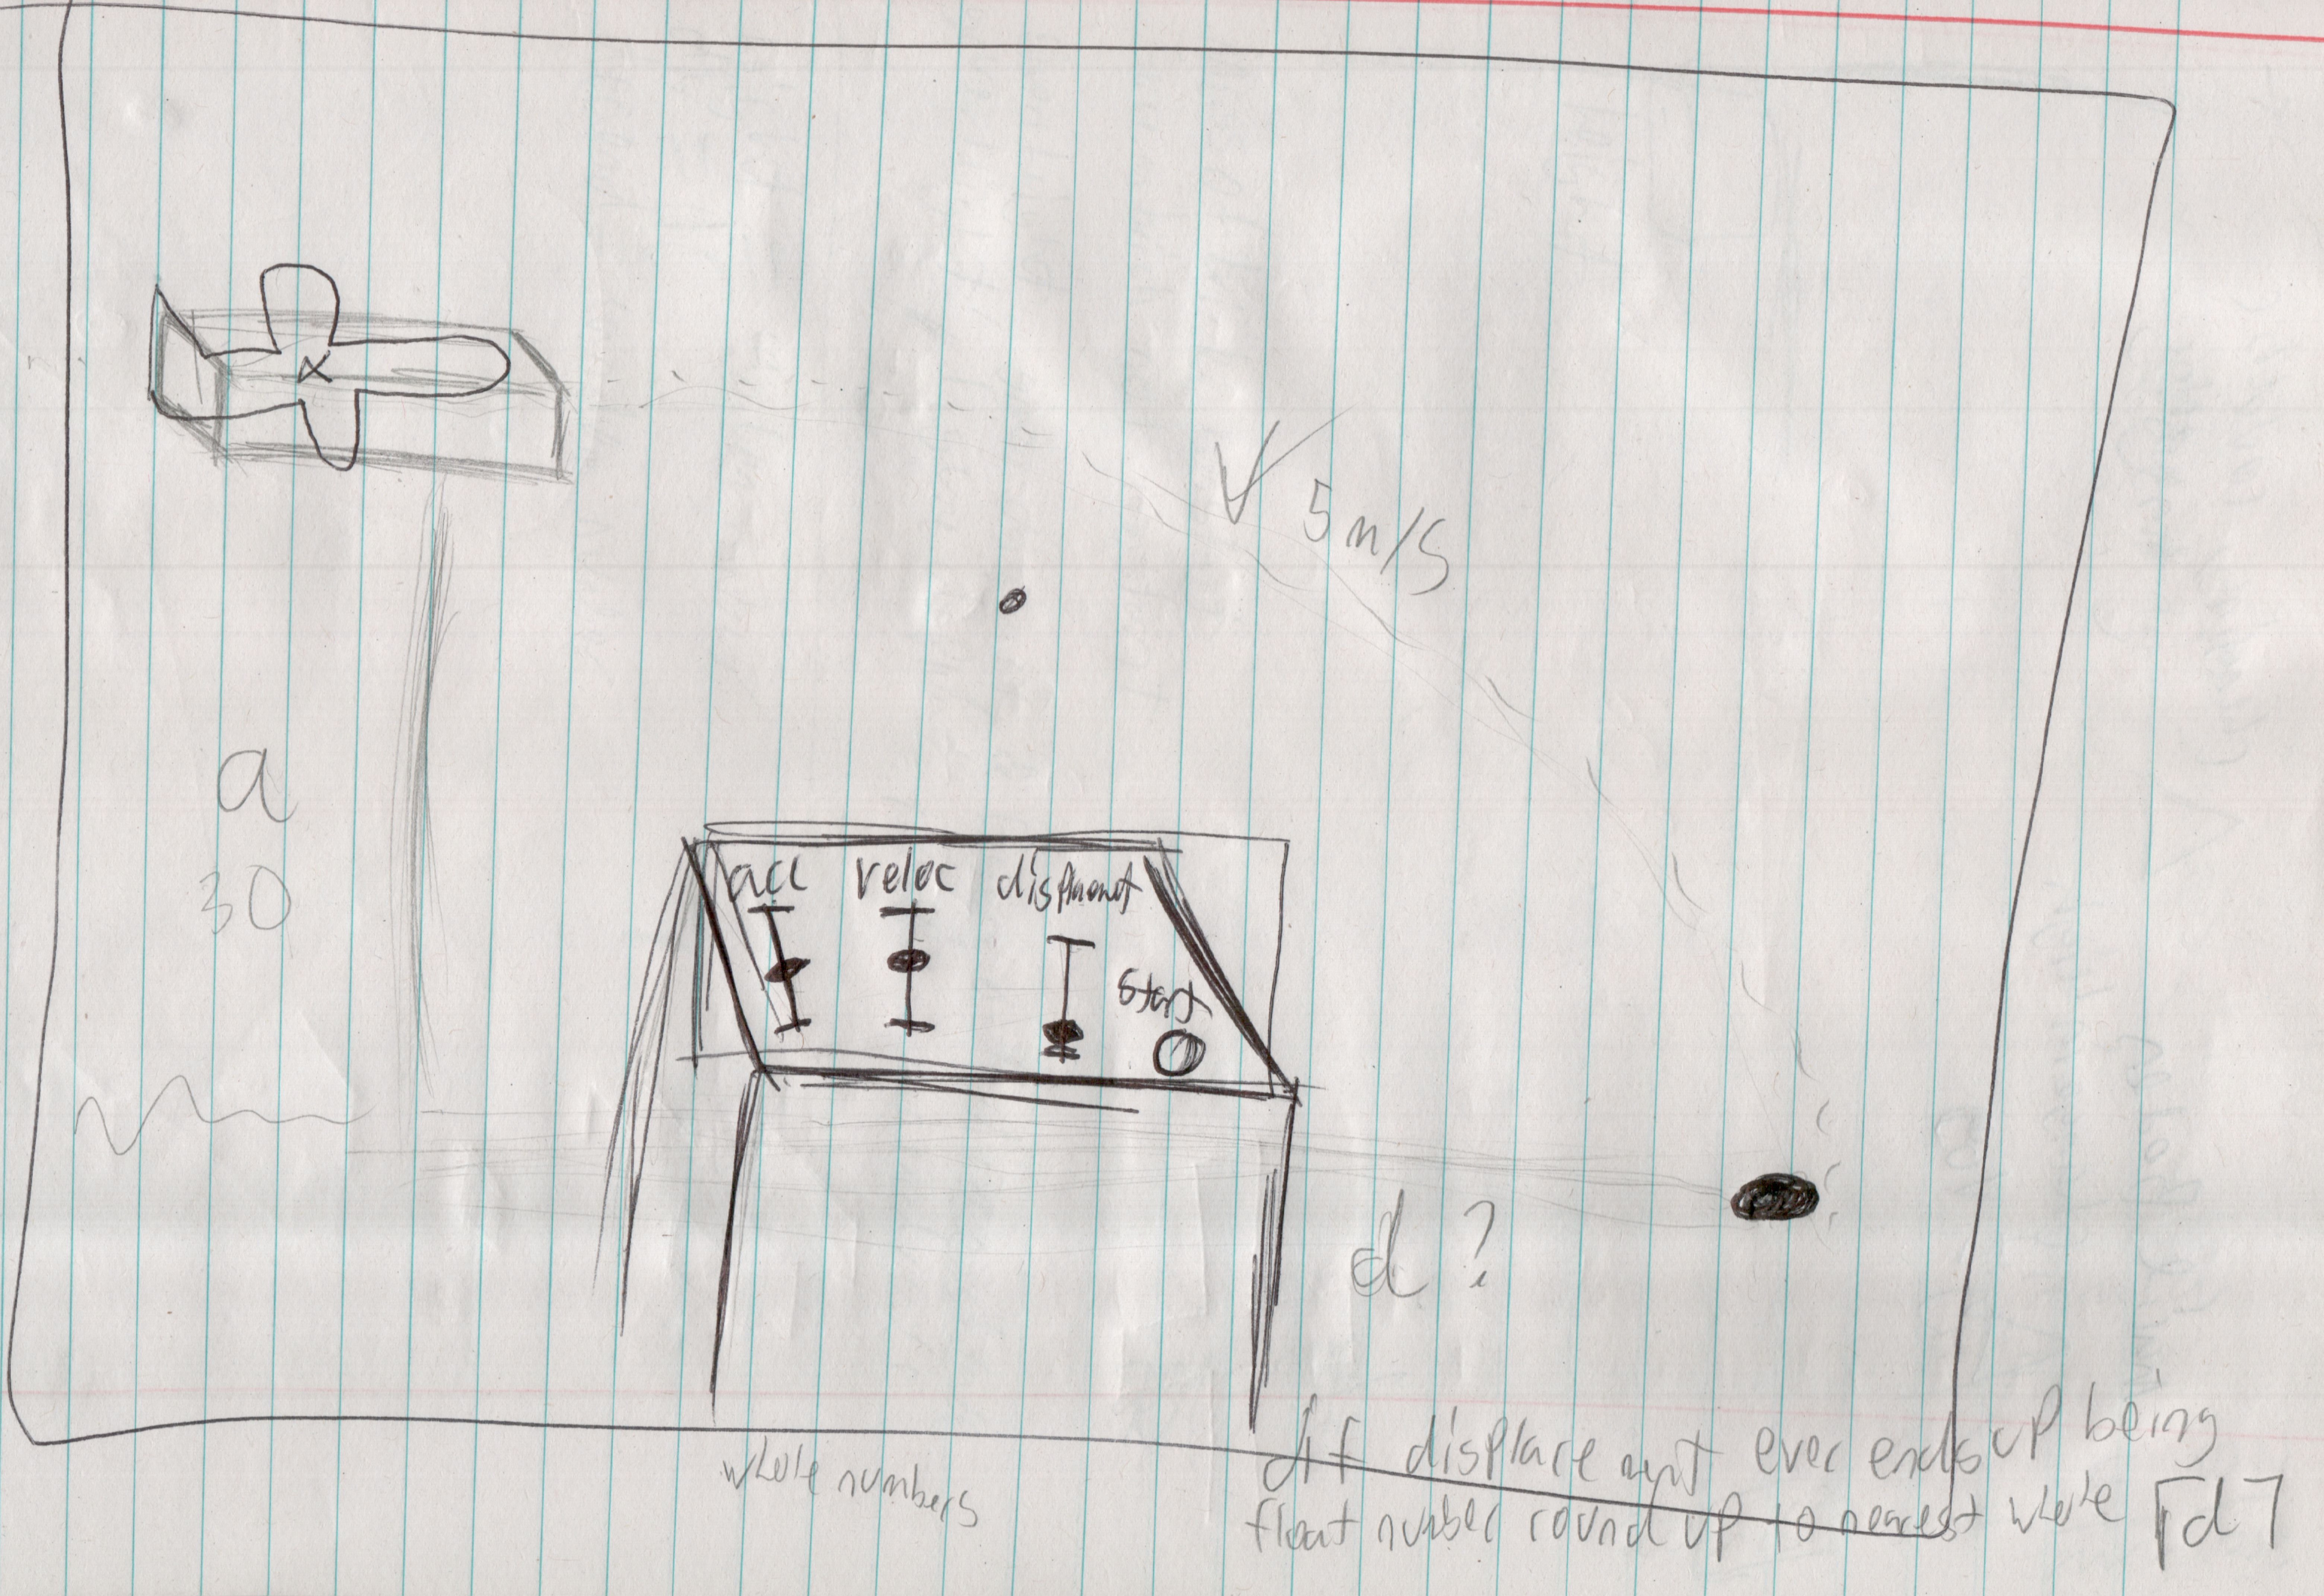 x
V
5 m/s
a
30
acc
veloc
start
d ?
whole numbers
if displacement ever ends up being
float number round up to nearest whole ⌈d⌉